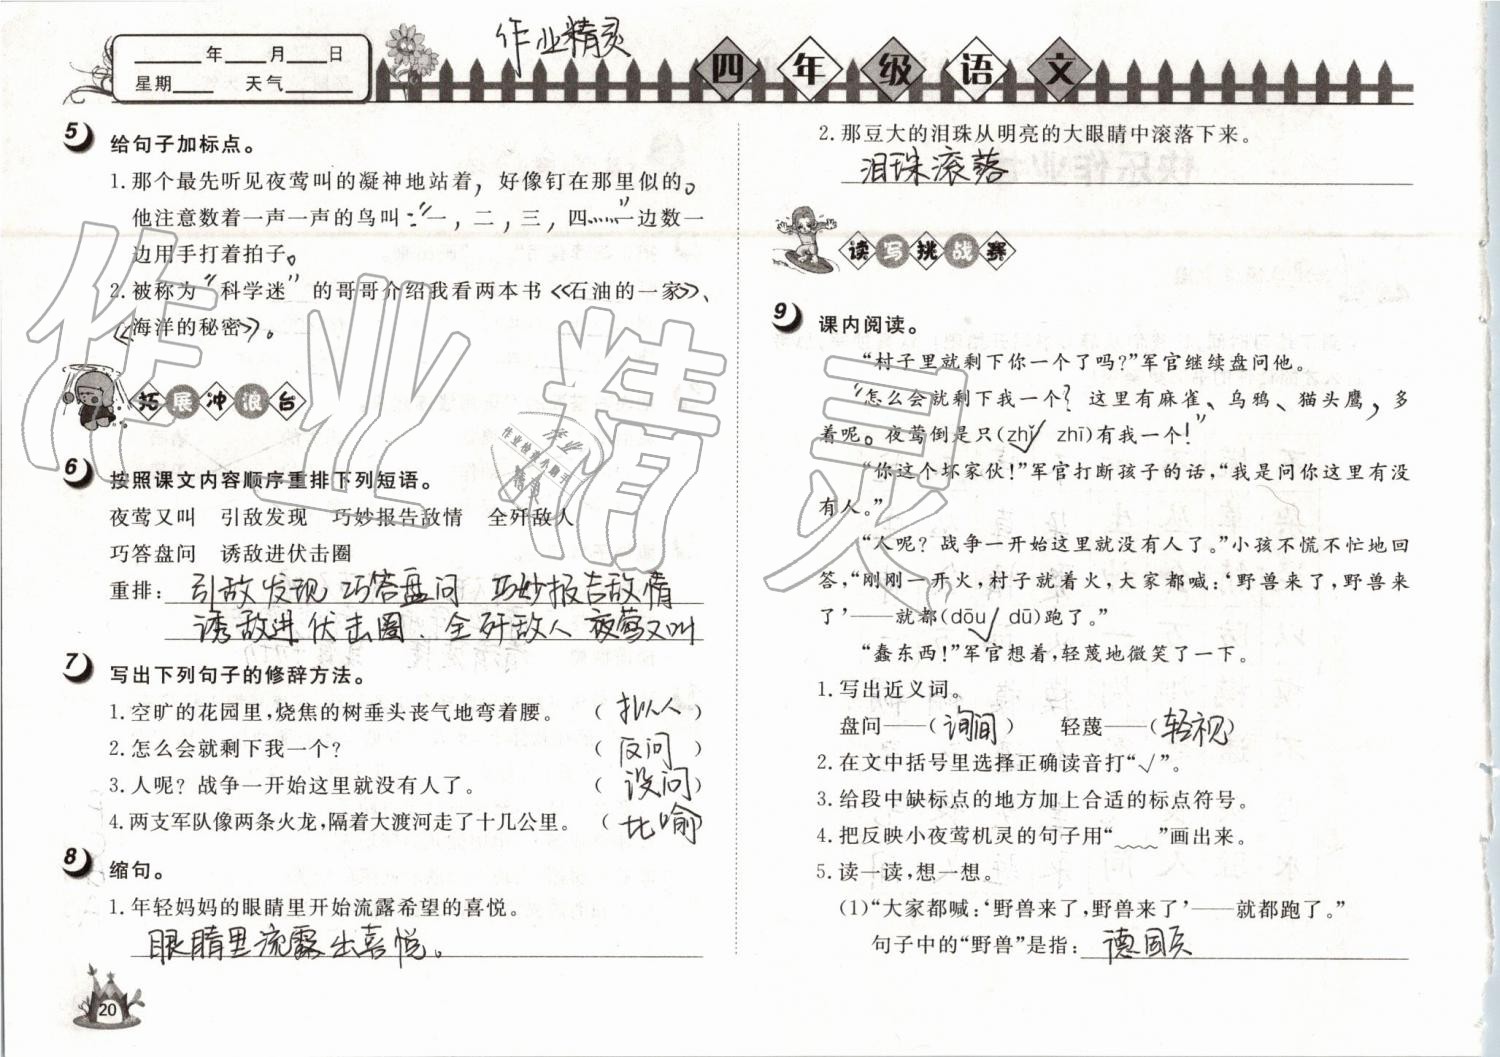 作业精灵
____年____月____日
星期____ 天气______
四年级语文
5 给句子加标点。
1.那个最先听见夜莺叫的凝神地站着，好像钉在那里似的。
他注意数着一声一声的鸟叫：“一，二，三，四……”一边数一
边用手打着拍子。
2.被称为“科学迷”的哥哥介绍我看两本书《石油的一家》、
《海洋的秘密》。
拓展冲浪台
6 按照课文内容顺序重排下列短语。
夜莺又叫 引敌发现 巧妙报告敌情 全歼敌人
巧答盘问 诱敌进伏击圈
重排：引敌发现 巧答盘问 巧妙报告敌情
诱敌进伏击圈、全歼敌人 夜莺又叫
7 写出下列句子的修辞方法。
1.空旷的花园里，烧焦的树垂头丧气地弯着腰。（拟人）
2.怎么会就剩下我一个？（反问）
3.人呢？战争一开始这里就没有人了。（设问）
4.两支军队像两条火龙，隔着大渡河走了十几公里。（比喻）
8 缩句。
1.年轻妈妈的眼睛里开始流露希望的喜悦。
眼睛里流露出喜悦。
20
2.那豆大的泪珠从明亮的大眼睛中滚落下来。
泪珠滚落
读写挑战赛
9 课内阅读。
“村子里就剩下你一个了吗？”军官继续盘问他。
“怎么会就剩下我一个？这里有麻雀、乌鸦、猫头鹰，多
着呢。夜莺倒是只(zhǐ√ zhī)有我一个！”
“你这个坏家伙！”军官打断孩子的话，“我是问你这里有没
有人。”
“人呢？战争一开始这里就没有人了。”小孩不慌不忙地回
答，“刚刚一开火，村子就着火，大家都喊：‘野兽来了，野兽来
了’——就都(dōu√ dū)跑了。”
“蠢东西！”军官想着，轻蔑地微笑了一下。
1.写出近义词。
盘问——（询间） 轻蔑——（轻视）
2.在文中括号里选择正确读音打“√”。
3.给段中缺标点的地方加上合适的标点符号。
4.把反映小夜莺机灵的句子用“﹏﹏”画出来。
5.读一读，想一想。
(1)“大家都喊：‘野兽来了，野兽来了’——就都跑了。”
句子中的“野兽”是指：德国兵